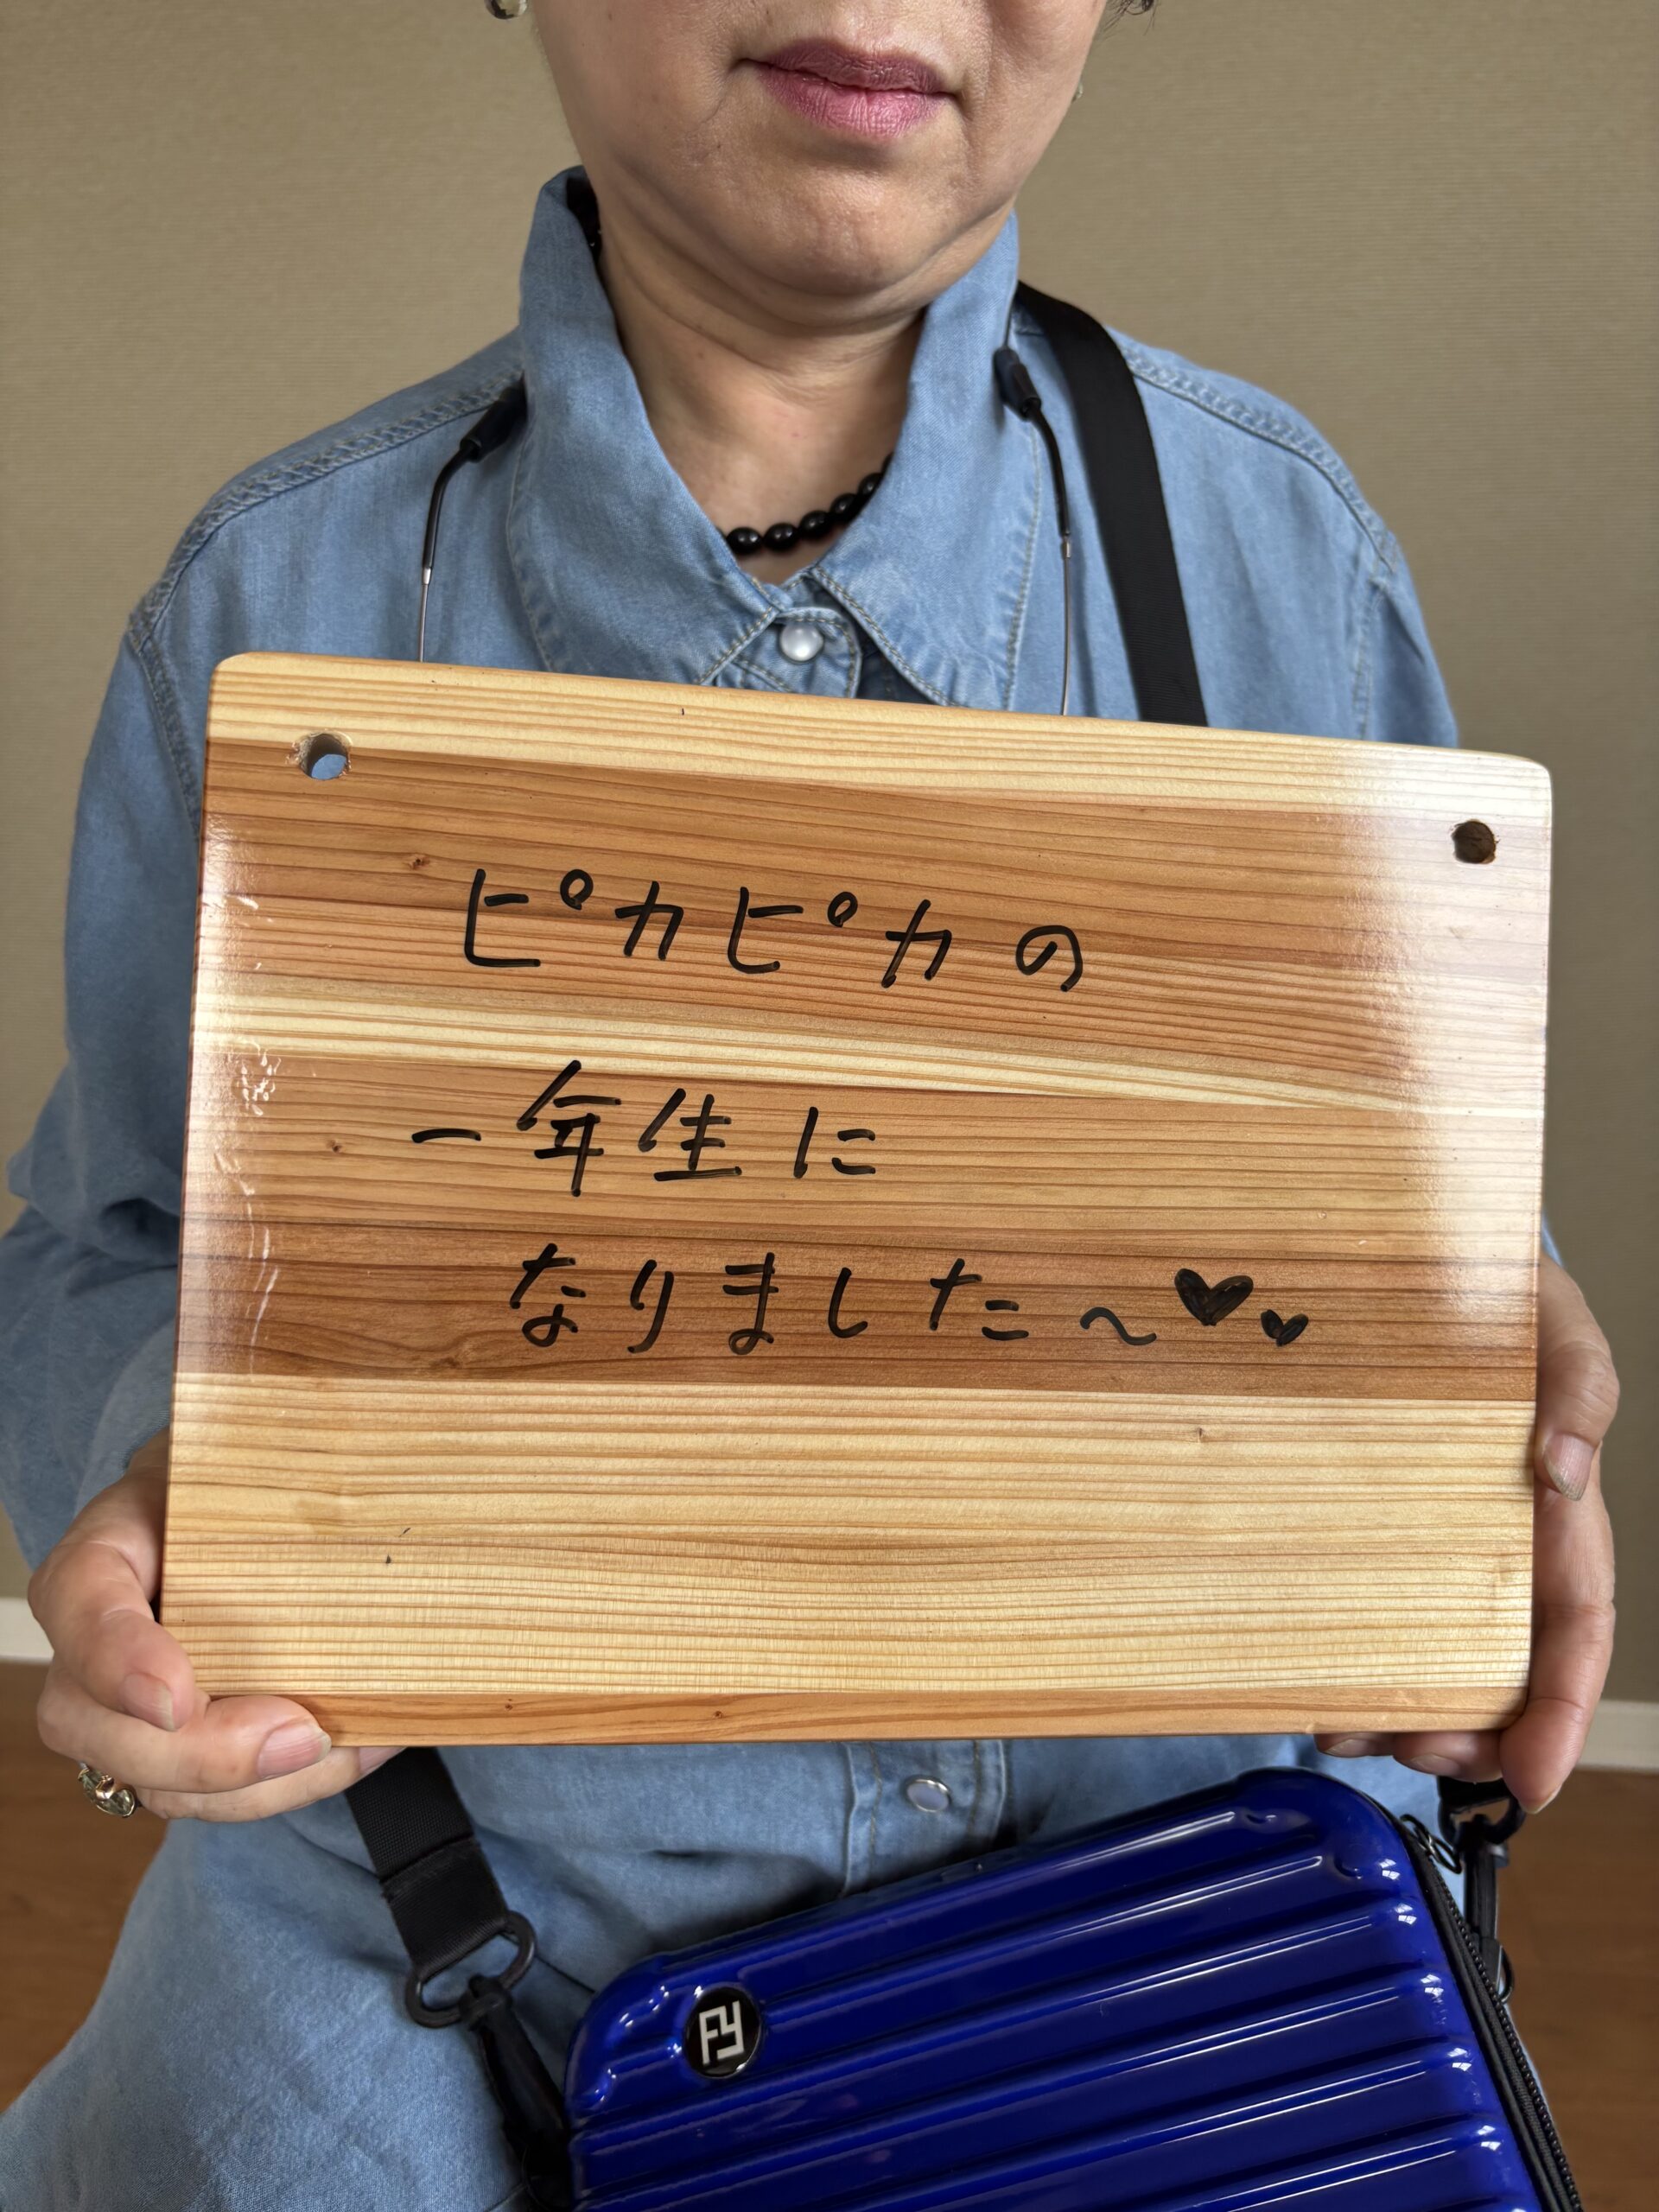 ピカピカの
一年生に
なりました～♥♥